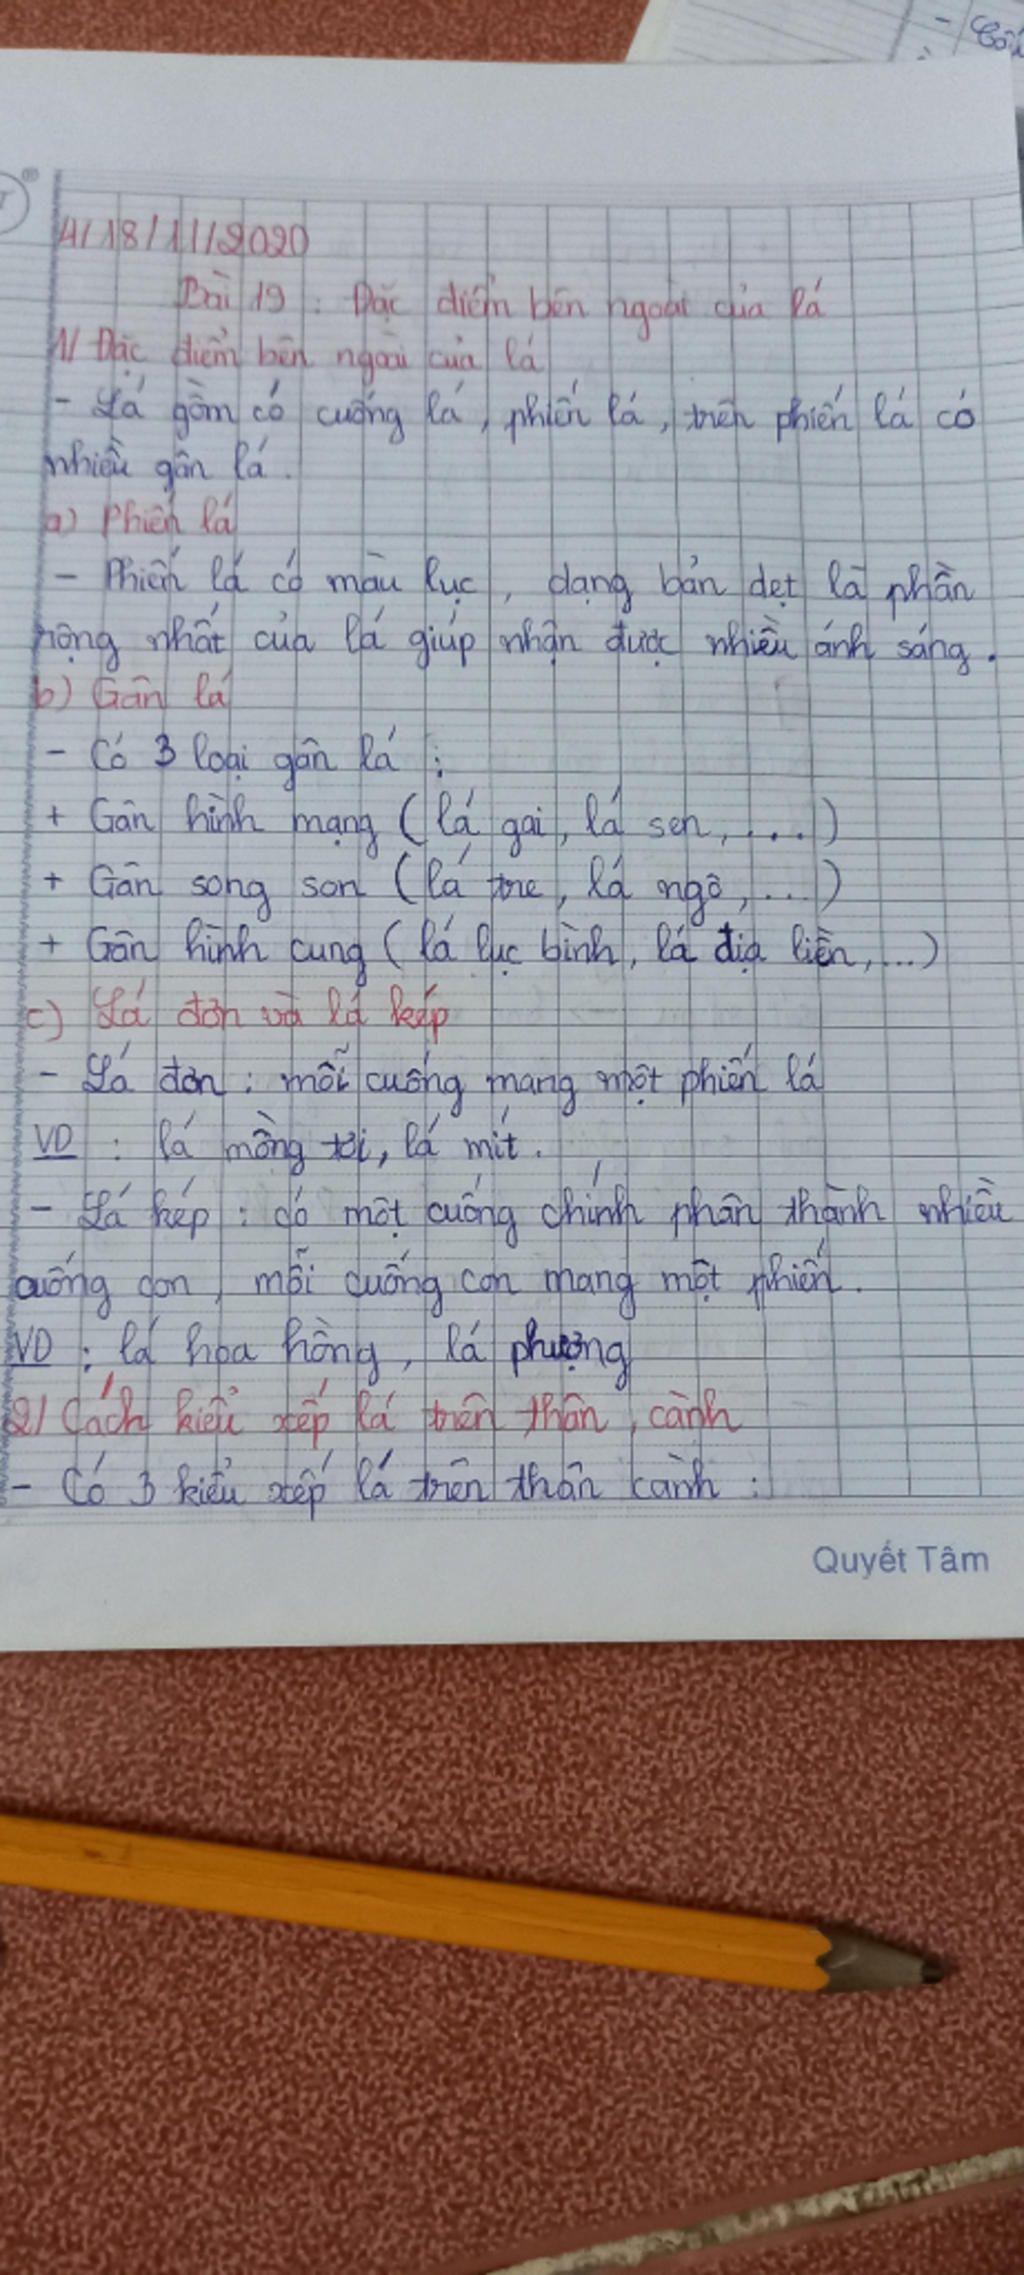 - Cối
4/18/11/2020
Bài 19 : Đặc điểm bên ngoài của lá
1/ Đặc điểm bên ngoài của lá
- Lá gồm có cuống lá, phiến lá, trên phiến lá có
nhiều gân lá.
a) Phiến lá
- Phiến lá có màu lục, dạng bản dẹt là phần
rộng nhất của lá giúp nhận được nhiều ánh sáng.
b) Gân lá
- Có 3 loại gân lá :
+ Gân hình mạng (lá gai, lá sen, ....)
+ Gân song son (lá tre, lá ngô, ...)
+ Gân hình cung (lá lục bình, lá địa liền, ...)
c) Lá đơn và lá kép
- Lá đơn : mỗi cuống mang một phiến lá
VD : lá mồng tơi, lá mít.
- Lá kép : có một cuống chính phân thành nhiều
cuống con, mỗi cuống con mang một phiến.
VD : lá hoa hồng, lá phượng
2/ Cách kiểu xếp lá trên thân, cành
- Có 3 kiểu xếp lá trên thân cành :
Quyết Tâm